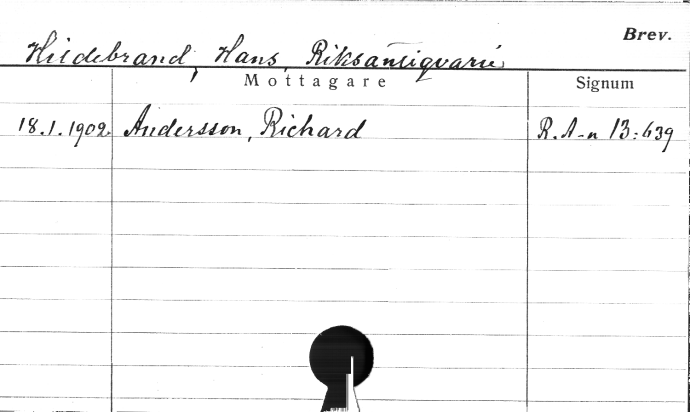 Brev.
Hildebrand, Hans, Riksantiqvarie
Mottagare Signum
18.1.1902. Andersson, Richard R.A-n 13:639